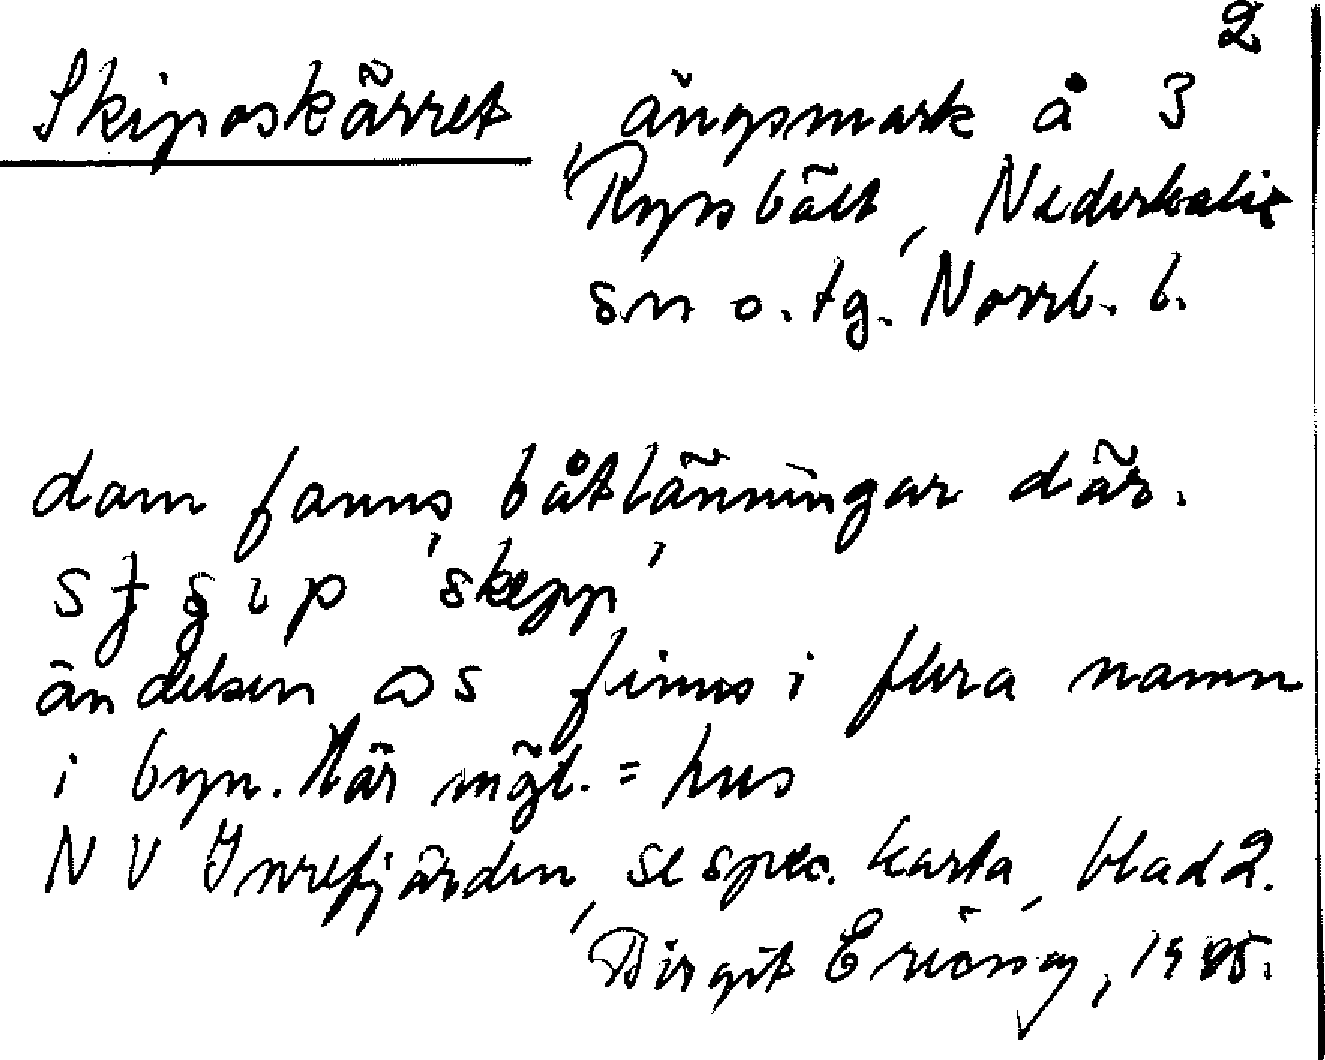 2
Skiposkärret, ängsmark å 3
Ryssbält, Nederkalix
sn o. tg. Norrb. l.
dom fanns båtlänningar där.
skepp
ändelsen os finns i flera namn
i byn. Här mgl. = hus
N V Inrefjärden, se spec. karta, blad 2.
Birgit Eriöson, 1985.